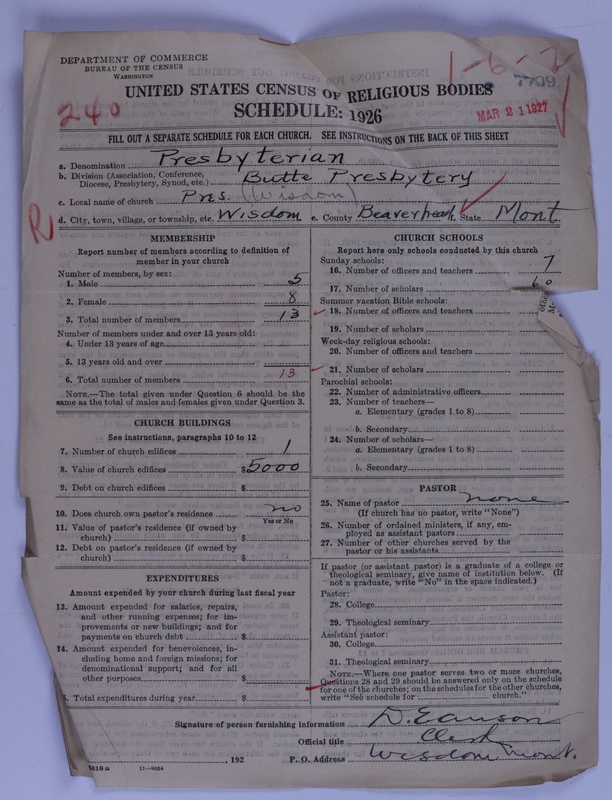 DEPARTMENT OF COMMERCE
BUREAU OF THE CENSUS
WASHINGTON
1-6-2
7709
UNITED STATES CENSUS OF RELIGIOUS BODIES
SCHEDULE: 1926
240
MAR 21 1927
FILL OUT A SEPARATE SCHEDULE FOR EACH CHURCH. SEE INSTRUCTIONS ON THE BACK OF THIS SHEET
a. Denomination Presbyterian
b. Division (Association, Conference, Diocese, Presbytery, Synod, etc.) Butte Presbytery
c. Local name of church Pres. (Wisdom)
R
d. City, town, village, or township, etc. Wisdom e. County Beaverhead f. State Mont
MEMBERSHIP
Report number of members according to definition of
member in your church
Number of members, by sex:
1. Male 5
2. Female 8
3. Total number of members 13
Number of members under and over 13 years old:
4. Under 13 years of age
5. 13 years old and over
6. Total number of members 13
NOTE.—The total given under Question 6 should be
same as the total of males and females given under Question 3.
CHURCH BUILDINGS
See instructions, paragraphs 10 to 12
7. Number of church edifices 1
8. Value of church edifices $5000
9. Debt on church edifices $
10. Does church own pastor's residence no
Yes or No
11. Value of pastor's residence (if owned by
church) $
12. Debt on pastor's residence (if owned by
church) $
EXPENDITURES
Amount expended by your church during last fiscal year
13. Amount expended for salaries, repairs,
and other running expenses; for im-
provements or new buildings; and for
payments on church debt $
14. Amount expended for benevolences, in-
cluding home and foreign missions; for
denominational support; and for all
other purposes $
5. Total expenditures during year $
CHURCH SCHOOLS
Report here only schools conducted by this church
Sunday schools:
16. Number of officers and teachers 7
17. Number of scholars 60
Summer vacation Bible schools:
18. Number of officers and teachers
19. Number of scholars
Week-day religious schools:
20. Number of officers and teachers
21. Number of scholars
Parochial schools:
22. Number of administrative officers
23. Number of teachers—
a. Elementary (grades 1 to 8)
b. Secondary
24. Number of scholars—
a. Elementary (grades 1 to 8)
b. Secondary
PASTOR
25. Name of pastor none
(If church has no pastor, write "None")
26. Number of ordained ministers, if any, em-
ployed as assistant pastors
27. Number of other churches served by the
pastor or his assistants
If pastor (or assistant pastor) is a graduate of a college or
theological seminary, give name of institution below. (If
not a graduate, write "No" in the space indicated.)
Pastor:
28. College
29. Theological seminary
Assistant pastor:
30. College
31. Theological seminary
NOTE.—Where one pastor serves two or more churches,
Questions 28 and 29 should be answered only on the schedule
for one of the churches; on the schedules for the other churches,
write "See schedule for church."
Signature of person furnishing information D. Eanson
Official title Clerk
, 192 P. O. Address Wisdom Mont.
11—9054